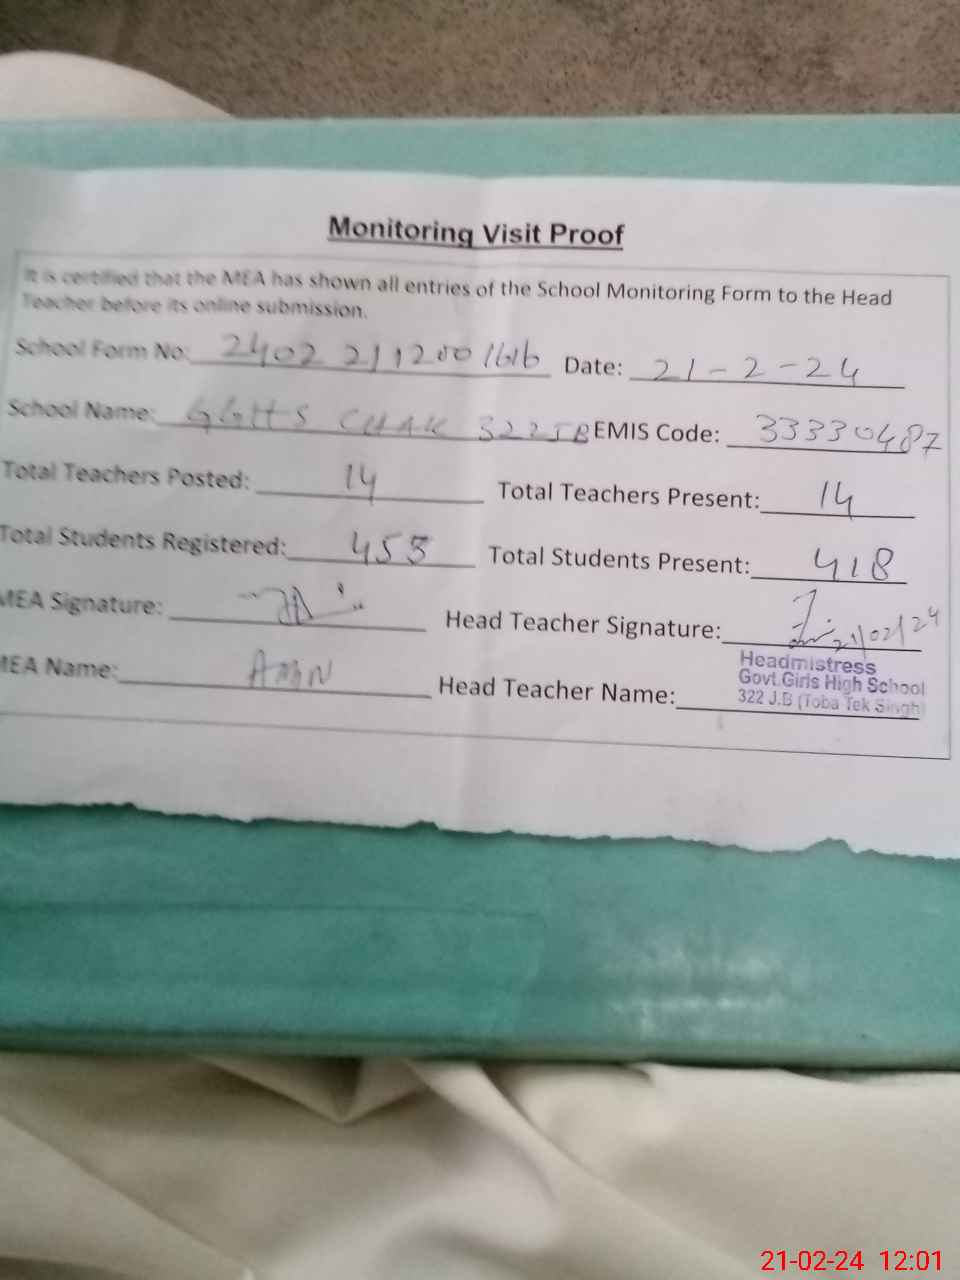 Monitoring Visit Proof
It is certified that the MEA has shown all entries of the School Monitoring Form to the Head
Teacher before its online submission.
School Form No: 2402 2112001616 Date: 21-2-24
School Name: GGHS CHAK 322JB EMIS Code: 33330487
Total Teachers Posted: 14 Total Teachers Present: 14
Total Students Registered: 453 Total Students Present: 418
MEA Signature: Head Teacher Signature: 21/02/24
MEA Name: Head Teacher Name:
Headmistress
Govt.Girls High School
322 J.B (Toba Tek Singh)
21-02-24 12:01